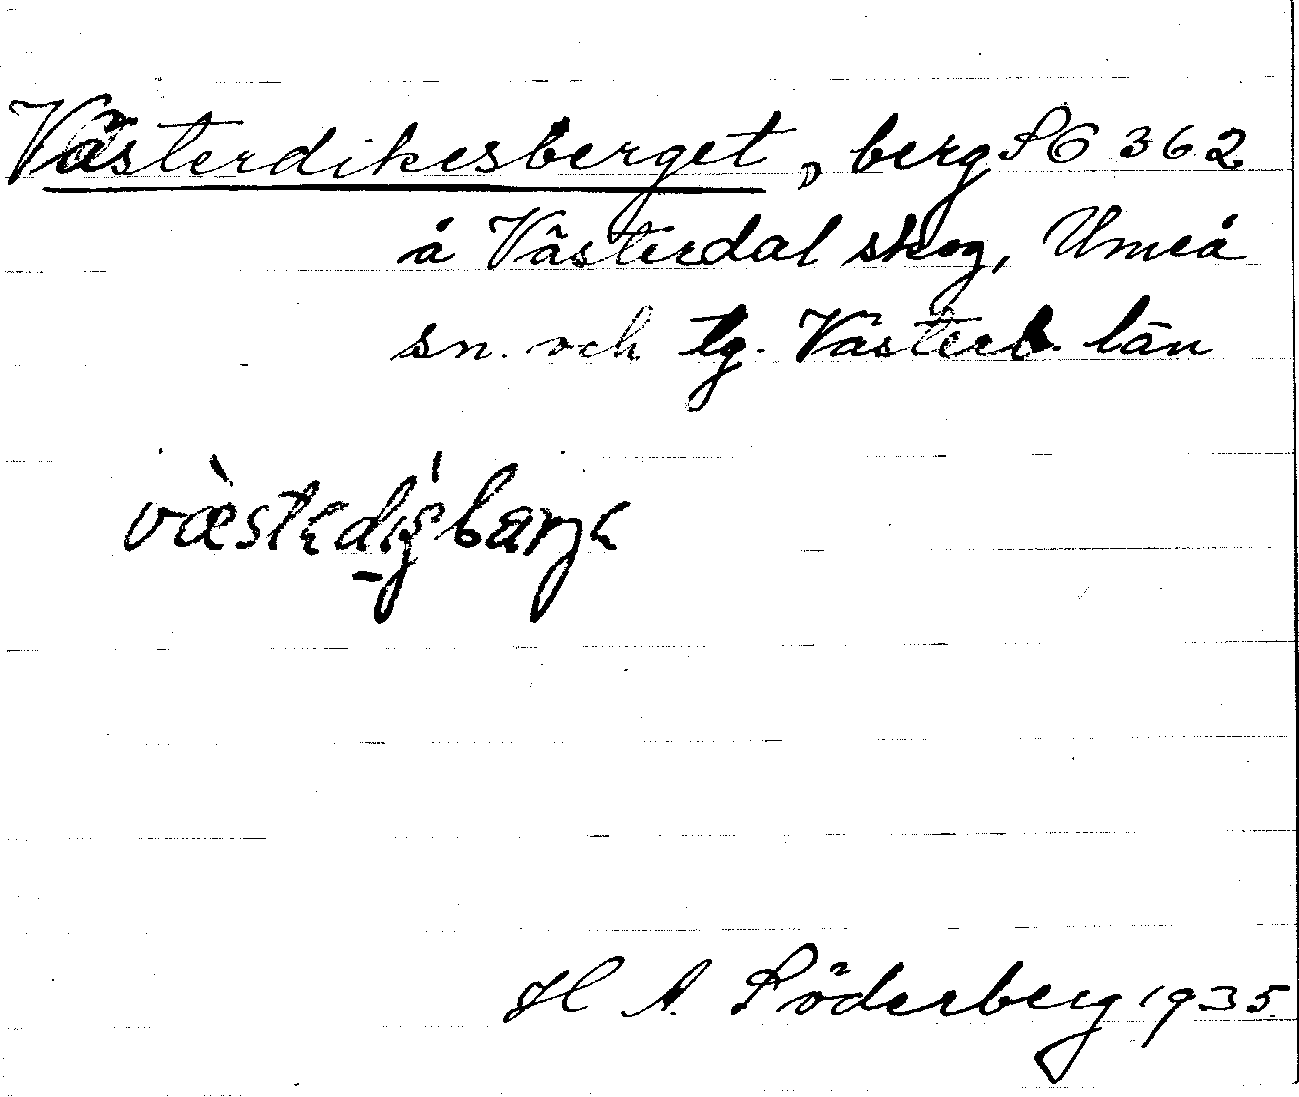 Västerdikesberget, berg S6 362
å Västerdal skog, Umeå
sn. och tg. Västerb. län
H A. Söderberg 1935